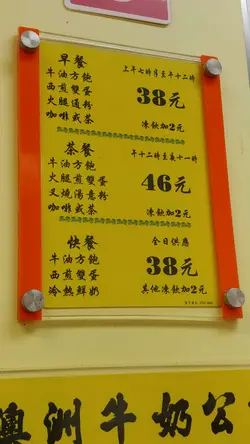 早餐
上午七時半至午十二時
牛油方飽
西煎雙蛋
火腿通粉
咖啡或茶
38元
凍飲加2元
茶餐
午十二時至夜十一時
牛油方飽
火腿煎雙蛋
叉燒湯意粉
咖啡或茶
46元
凍飲加2元
快餐
全日供應
牛油方飽
西煎雙蛋
冷熱鮮奶
38元
其他凍飲加2元
澳洲牛奶公